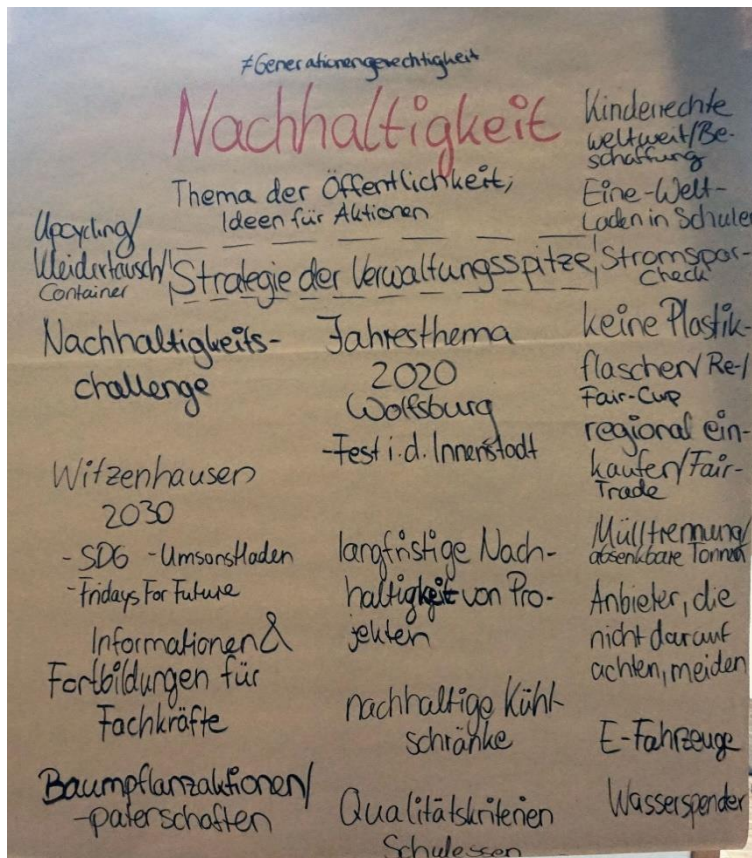 ≠Generationengerechtigkeit
Nachhaltigkeit
Thema der Öffentlichkeit,
Ideen für Aktionen
Strategie der Verwaltungsspitze
Upcycling/
Kleidertausch/
Container
Nachhaltigkeits-
challenge
Witzenhausen
2030
- SDG - Umsonstladen
- Fridays For Future
Informationen &
Fortbildungen für
Fachkräfte
Baumpflanzaktionen/
-paterschaften
Jahresthema
2020
Wolfsburg
-Fest i.d. Innenstadt
langfristige Nach-
haltigkeit von Pro-
jekten
nachhaltige Kühl-
schränke
Qualitätskriterien
Schulessen
Kinderrechte
weltweit/Be-
schaffung
Eine-Welt-
Laden in Schulen
Stromspar-
Check
keine Plastik-
flaschen/Re-/
Fair-Cup
regional ein-
kaufen/Fair-
Trade
Mülltrennung/
absenkbare Tonnen
Anbieter, die
nicht darauf
achten, meiden
E-Fahrzeuge
Wasserspender